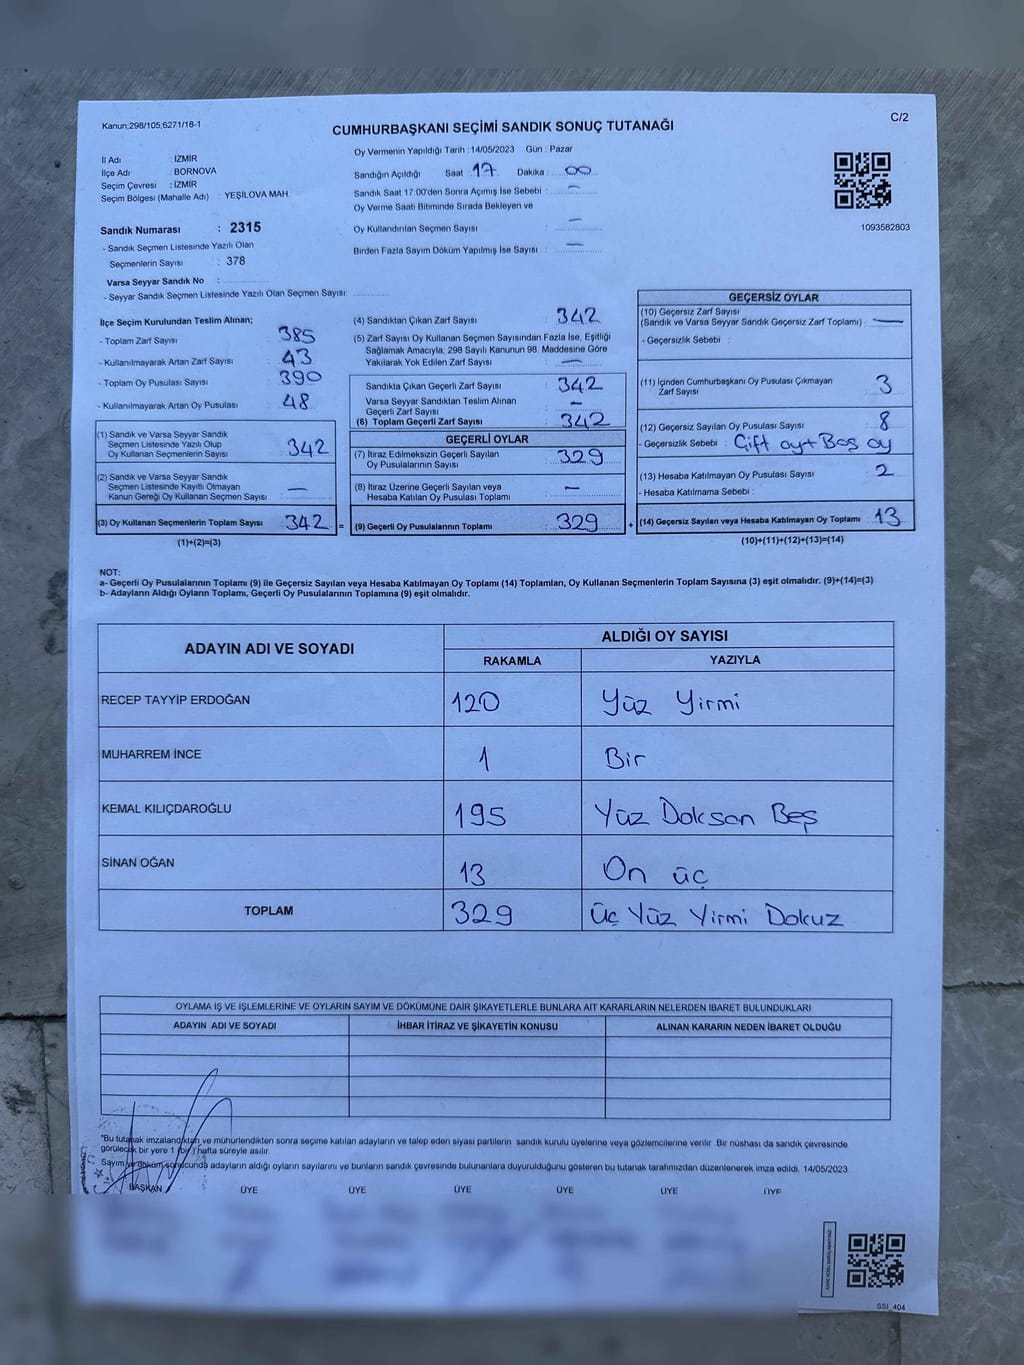 Kanun,298/105,6271/18-1
CUMHURBAŞKANI SEÇİMİ SANDIK SONUÇ TUTANAĞI
C/2
İl Adı : İZMİR
İlçe Adı : BORNOVA
Seçim Çevresi : İZMİR
Seçim Bölgesi (Mahalle Adı) : YEŞİLOVA MAH.
Sandık Numarası : 2315
- Sandık Seçmen Listesinde Yazılı Olan
Seçmenlerin Sayısı : 378
Varsa Seyyar Sandık No :
- Seyyar Sandık Seçmen Listesinde Yazılı Olan Seçmen Sayısı:
Oy Vermenin Yapıldığı Tarih :14/05/2023 Gün : Pazar
Sandığın Açıldığı Saat 17 Dakika : 00
Sandık Saat 17:00'den Sonra Açımış İse Sebebi : —
Oy Verme Saati Bitiminde Sırada Bekleyen ve
Oy Kullandırılan Seçmen Sayısı : —
Birden Fazla Sayım Döküm Yapılmış İse Sayısı : —
1093582803
İlçe Seçim Kurulundan Teslim Alınan;
- Toplam Zarf Sayısı : 385
- Kullanılmayarak Artan Zarf Sayısı : 43
- Toplam Oy Pusulası Sayısı : 390
- Kullanılmayarak Artan Oy Pusulası : 48
(1) Sandık ve Varsa Seyyar Sandık
Seçmen Listesinde Yazılı Olup
Oy Kullanan Seçmenlerin Sayısı : 342
(2) Sandık ve Varsa Seyyar Sandık
Seçmen Listesinde Kayıtlı Olmayan
Kanun Gereği Oy Kullanan Seçmen Sayısı : —
(3) Oy Kullanan Seçmenlerin Toplam Sayısı : 342 =
(1)+(2)=(3)
(4) Sandıktan Çıkan Zarf Sayısı : 342
(5) Zarf Sayısı Oy Kullanan Seçmen Sayısından Fazla İse, Eşitliği
Sağlamak Amacıyla; 298 Sayılı Kanunun 98. Maddesine Göre
Yakılarak Yok Edilen Zarf Sayısı : —
Sandıkta Çıkan Geçerli Zarf Sayısı : 342
Varsa Seyyar Sandıktan Teslim Alınan
Geçerli Zarf Sayısı : —
(6) Toplam Geçerli Zarf Sayısı : 342
GEÇERLİ OYLAR
(7) İtiraz Edilmeksizin Geçerli Sayılan
Oy Pusulalarının Sayısı : 329
(8) İtiraz Üzerine Geçerli Sayılan veya
Hesaba Katılan Oy Pusulası Toplamı : —
(9) Geçerli Oy Pusulalarının Toplamı : 329 +
GEÇERSİZ OYLAR
(10) Geçersiz Zarf Sayısı
(Sandık ve Varsa Seyyar Sandık Geçersiz Zarf Toplamı) : —
- Geçersizlik Sebebi :
(11) İçinden Cumhurbaşkanı Oy Pusulası Çıkmayan
Zarf Sayısı : 3
(12) Geçersiz Sayılan Oy Pusulası Sayısı : 8
- Geçersizlik Sebebi : Çift oy + Boş oy
(13) Hesaba Katılmayan Oy Pusulası Sayısı : 2
- Hesaba Katılmama Sebebi :
(14) Geçersiz Sayılan veya Hesaba Katılmayan Oy Toplamı : 13
(10)+(11)+(12)+(13)=(14)
NOT:
a- Geçerli Oy Pusulalarının Toplamı (9) ile Geçersiz Sayılan veya Hesaba Katılmayan Oy Toplamı (14) Toplamları, Oy Kullanan Seçmenlerin Toplam Sayısına (3) eşit olmalıdır. (9)+(14)=(3)
b- Adayların Aldığı Oyların Toplamı, Geçerli Oy Pusulalarının Toplamına (9) eşit olmalıdır.
ADAYIN ADI VE SOYADI
ALDIĞI OY SAYISI
RAKAMLA YAZIYLA
RECEP TAYYİP ERDOĞAN 120 Yüz Yirmi
MUHARREM İNCE 1 Bir
KEMAL KILIÇDAROĞLU 195 Yüz Doksan Beş
SİNAN OĞAN 13 On üç
TOPLAM 329 Üç Yüz Yirmi Dokuz
OYLAMA İŞ VE İŞLEMLERİNE VE OYLARIN SAYIM VE DÖKÜMÜNE DAİR ŞİKAYETLERLE BUNLARA AİT KARARLARIN NELERDEN İBARET BULUNDUKLARI
ADAYIN ADI VE SOYADI İHBAR İTİRAZ VE ŞİKAYETİN KONUSU ALINAN KARARIN NEDEN İBARET OLDUĞU
*Bu tutanak imzalandıktan ve mühürlendikten sonra seçime katılan adayların ve talep eden siyasi partilerin sandık kurulu üyelerine veya gözlemcilerine verilir. Bir nüshası da sandık çevresinde
görülecek bir yere 1 (bir) hafta süreyle asılır.
Sayım ve döküm sonucunda adayların aldığı oyların sayılarını ve bunların sandık çevresinde bulunanlara duyurulduğunu gösteren bu tutanak tarafımızdan düzenlenerek imza edildi. 14/05/2023
BAŞKAN ÜYE ÜYE ÜYE ÜYE ÜYE ÜYE
SSI_404